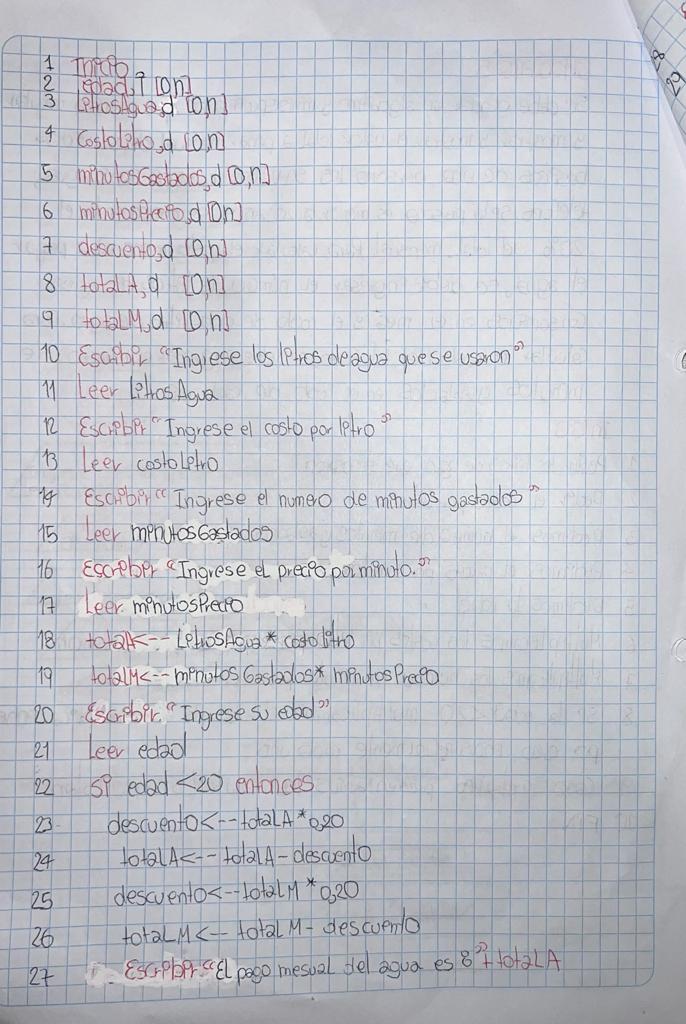 1 Inicio
2 edad, i [0,n]
3 LitrosAgua,d [0,n]
4 CostoLitro,d [0,n]
5 minutosGastados,d [0,n]
6 minutosPrecio,d [0n]
7 descuento,d [0,n]
8 totalA,d [0,n]
9 totalM,d [0,n]
10 Escribir "Ingrese los litros de agua que se usaron"
11 Leer LitrosAgua
12 Escribir "Ingrese el costo por litro"
13 Leer costoLitro
14 Escribir "Ingrese el numero de minutos gastados"
15 Leer minutosGastados
16 Escribir "Ingrese el precio por minuto."
17 Leer minutosPrecio
18 totalA<-- LitrosAgua * costolitro
19 totalM<-- minutosGastados* minutosPrecio
20 Escribir "Ingrese su edad"
21 Leer edad
22 Si edad <20 entonces
23 descuento<--totalA*0,20
24 totalA<-- totalA-descuento
25 descuento<--totalM*0,20
26 totalM<-- totalM- descuento
27 Escribir "El pago mesual del agua es 8"+totalA
28
29